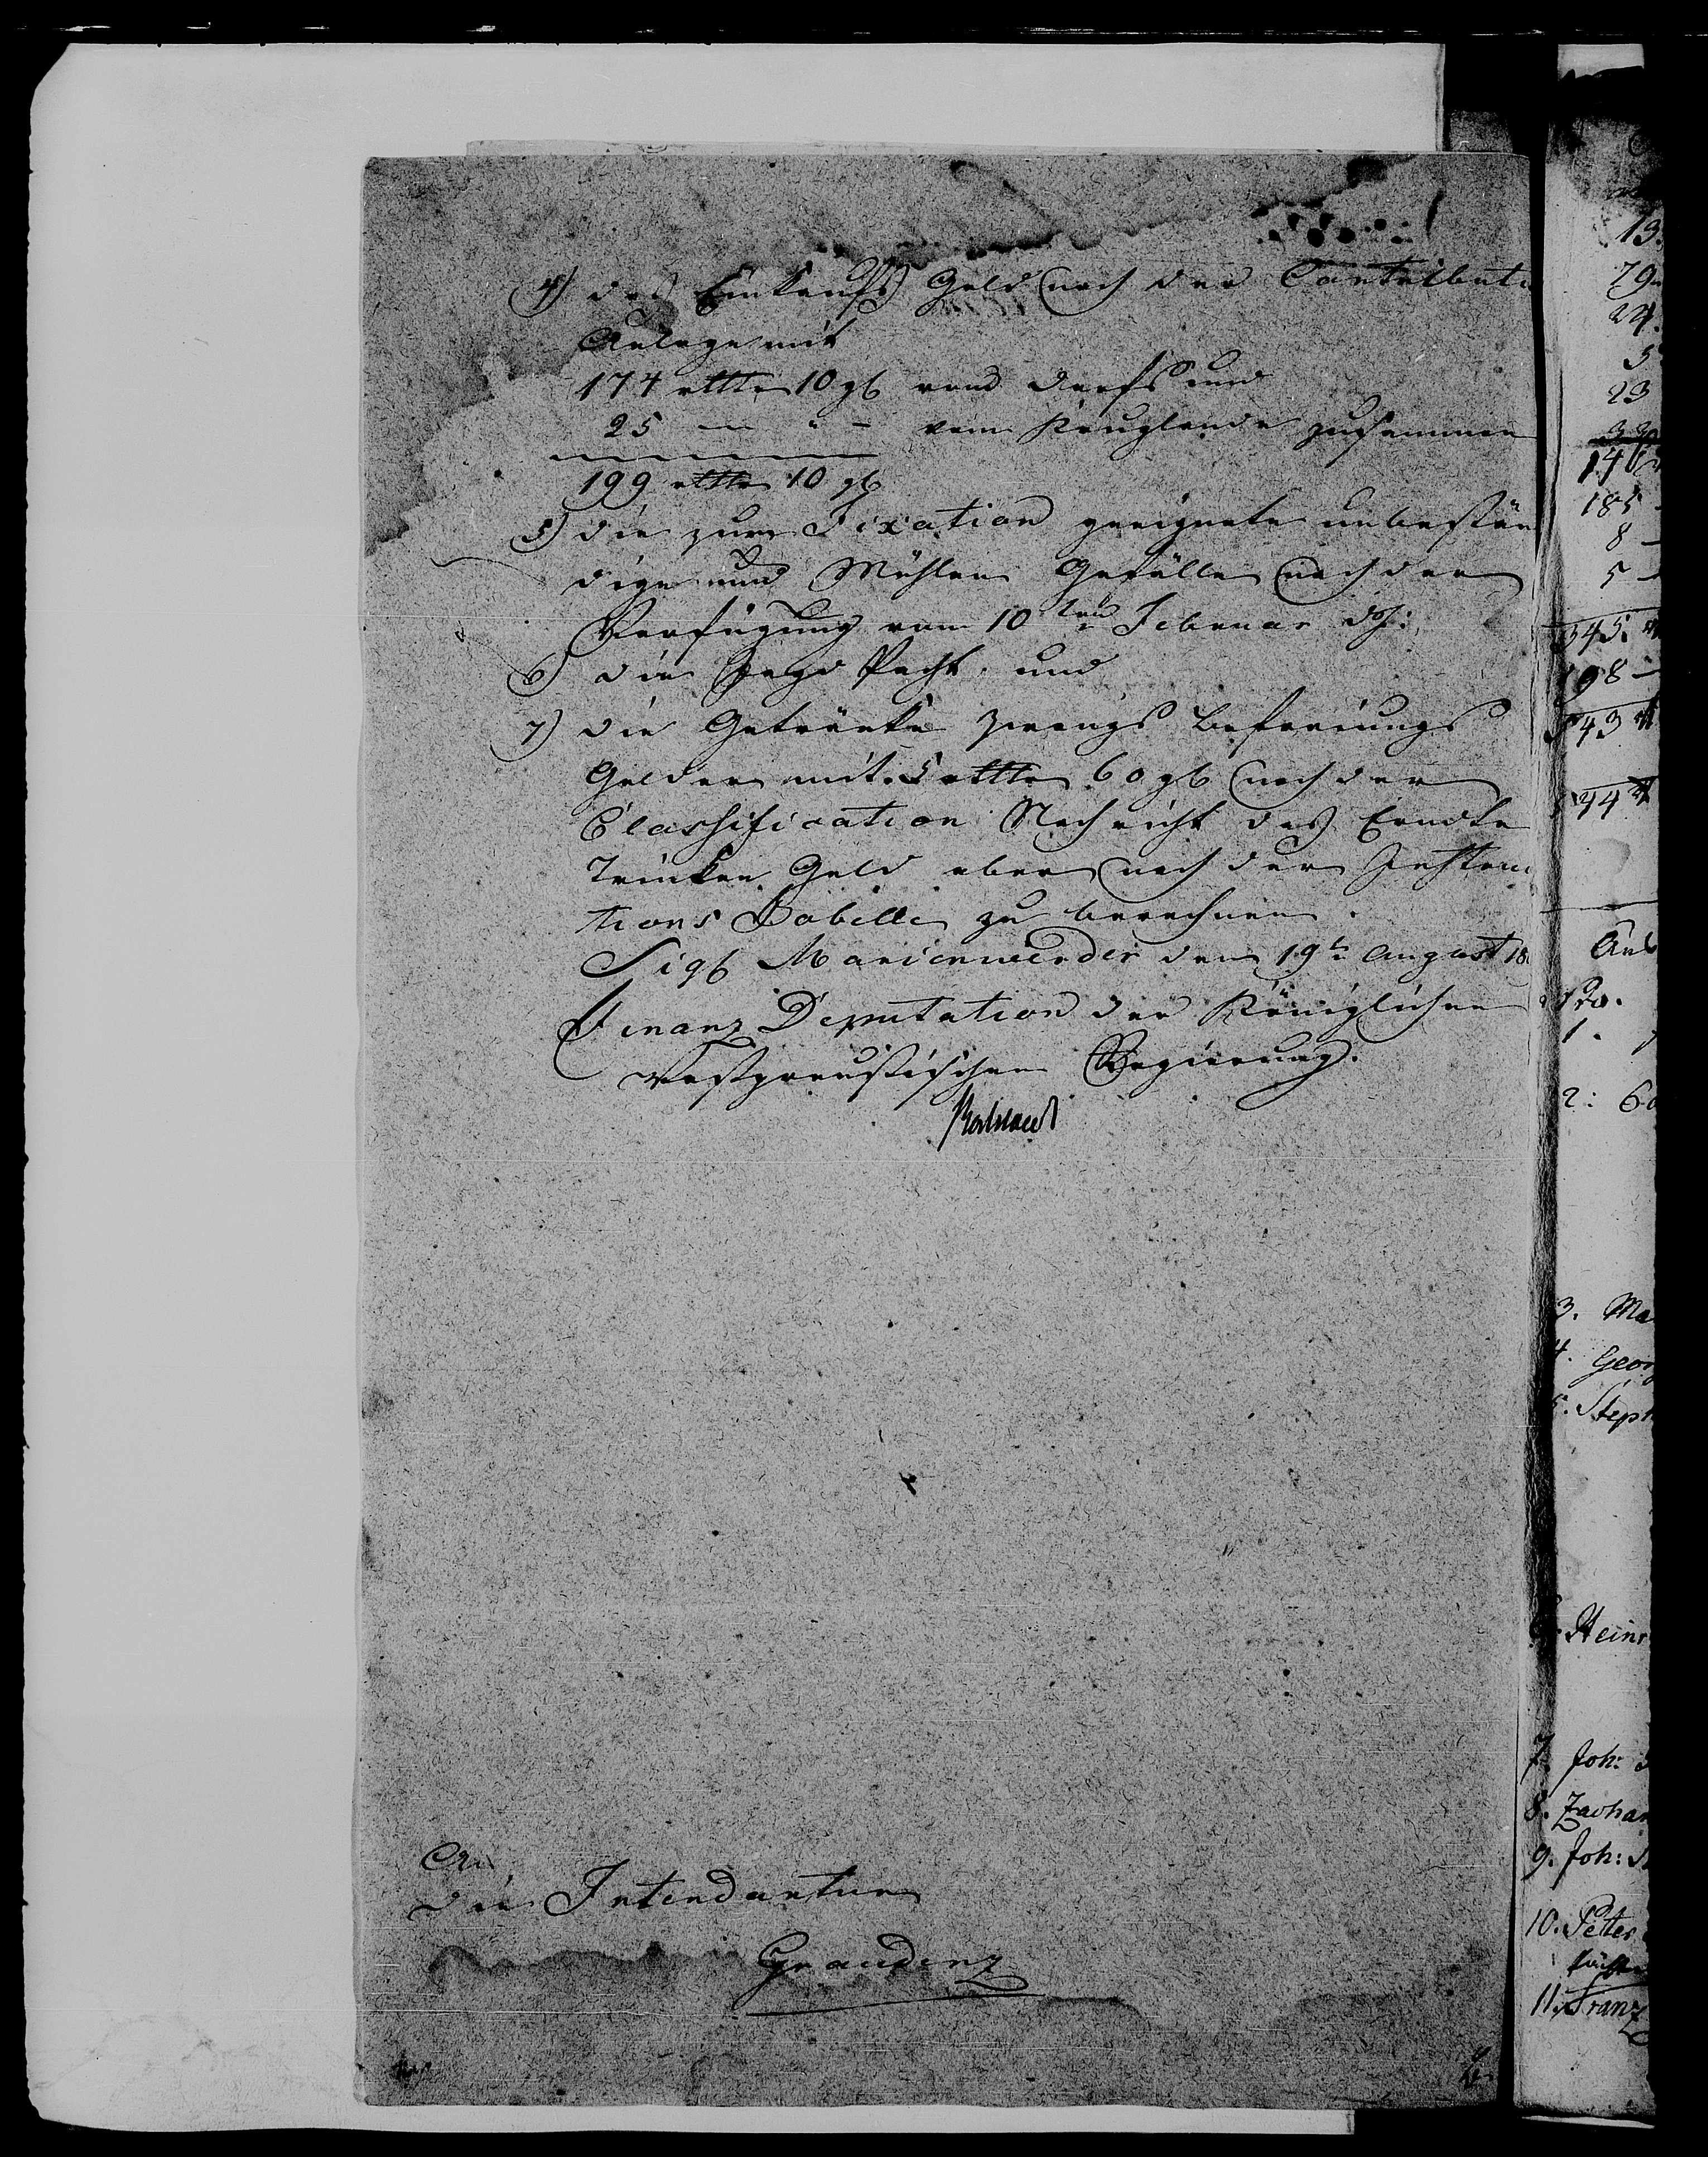 4) das Einkaufs Geld nach der Contributi
Anlage mit
174 rttlr 10 gb vom Dorfe und
25 — " — vom Kruglande zusammen
199 rttlr 10 gb
5) die zur Fixation geeignete unbestän
dige und Mühlen Gefälle nach der
Verfügung vom 10ten Februar d J:
6) die Jagd Pacht und
7) die Getränke Zwangs Befreiungs
Gelder mit 5 rttlr 60 gb nach der
Classification Nachricht das Erndte
Trinken Geld aber nach der
tions Tabelle zu berechnen.
Sigb Marienwerder den 19t August 18
Finanz Deputation der Königlichen
Westpreußischen Regierung.
An
die Intendantur
Graudenz
13
79
24.
3
23
33
14
185
8 —
5 —
345.
198 —
543
344
An
No.
1.
2: 60
3. Ma
4. Geor
5. Steph
6. Heinr
7. Joh:
8. Zachar
9. Joh:
10. Peter
11. Franz